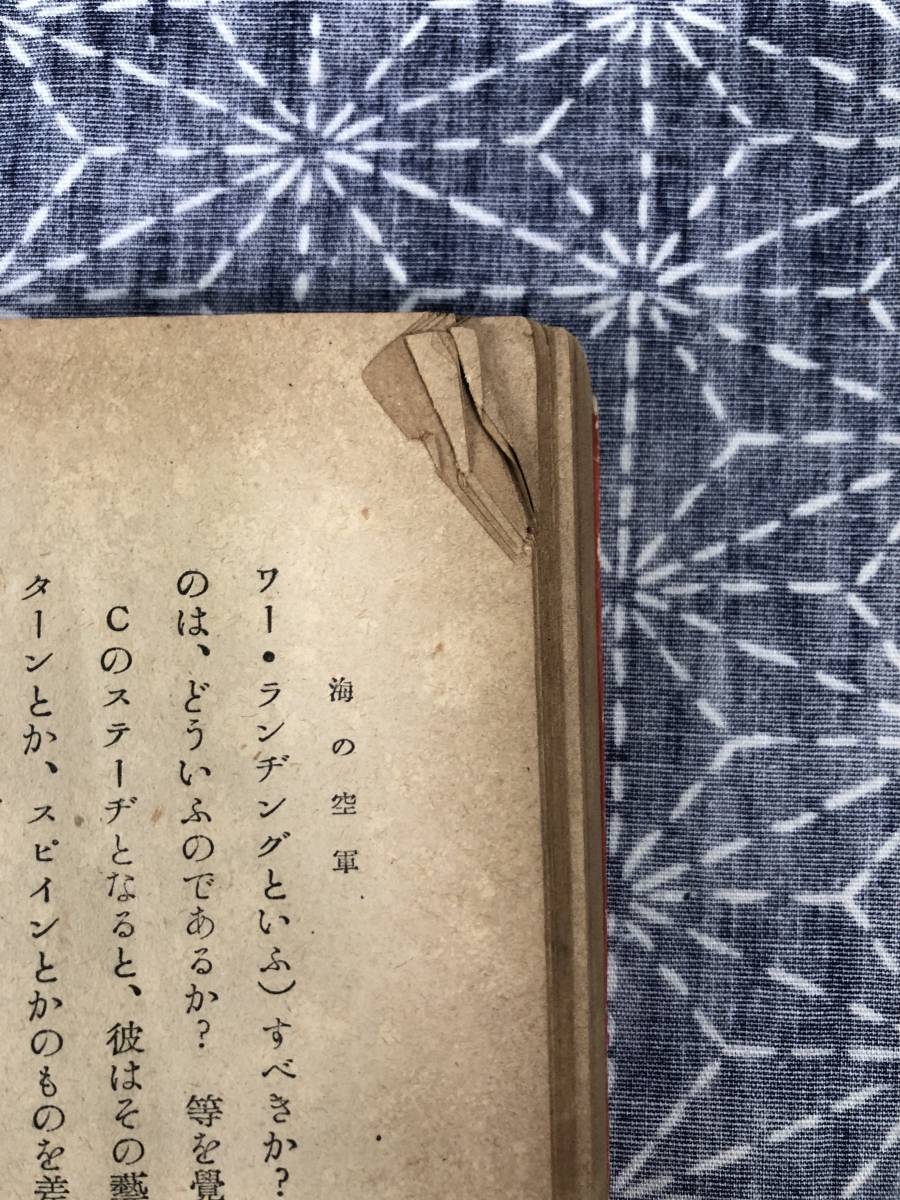 海の空軍
ワー・ランヂングといふ）すべきか？
のは、どういふのであるか？　等を覺
Cのステーヂとなると、彼はその藝
ターンとか、スピインとかのものを差